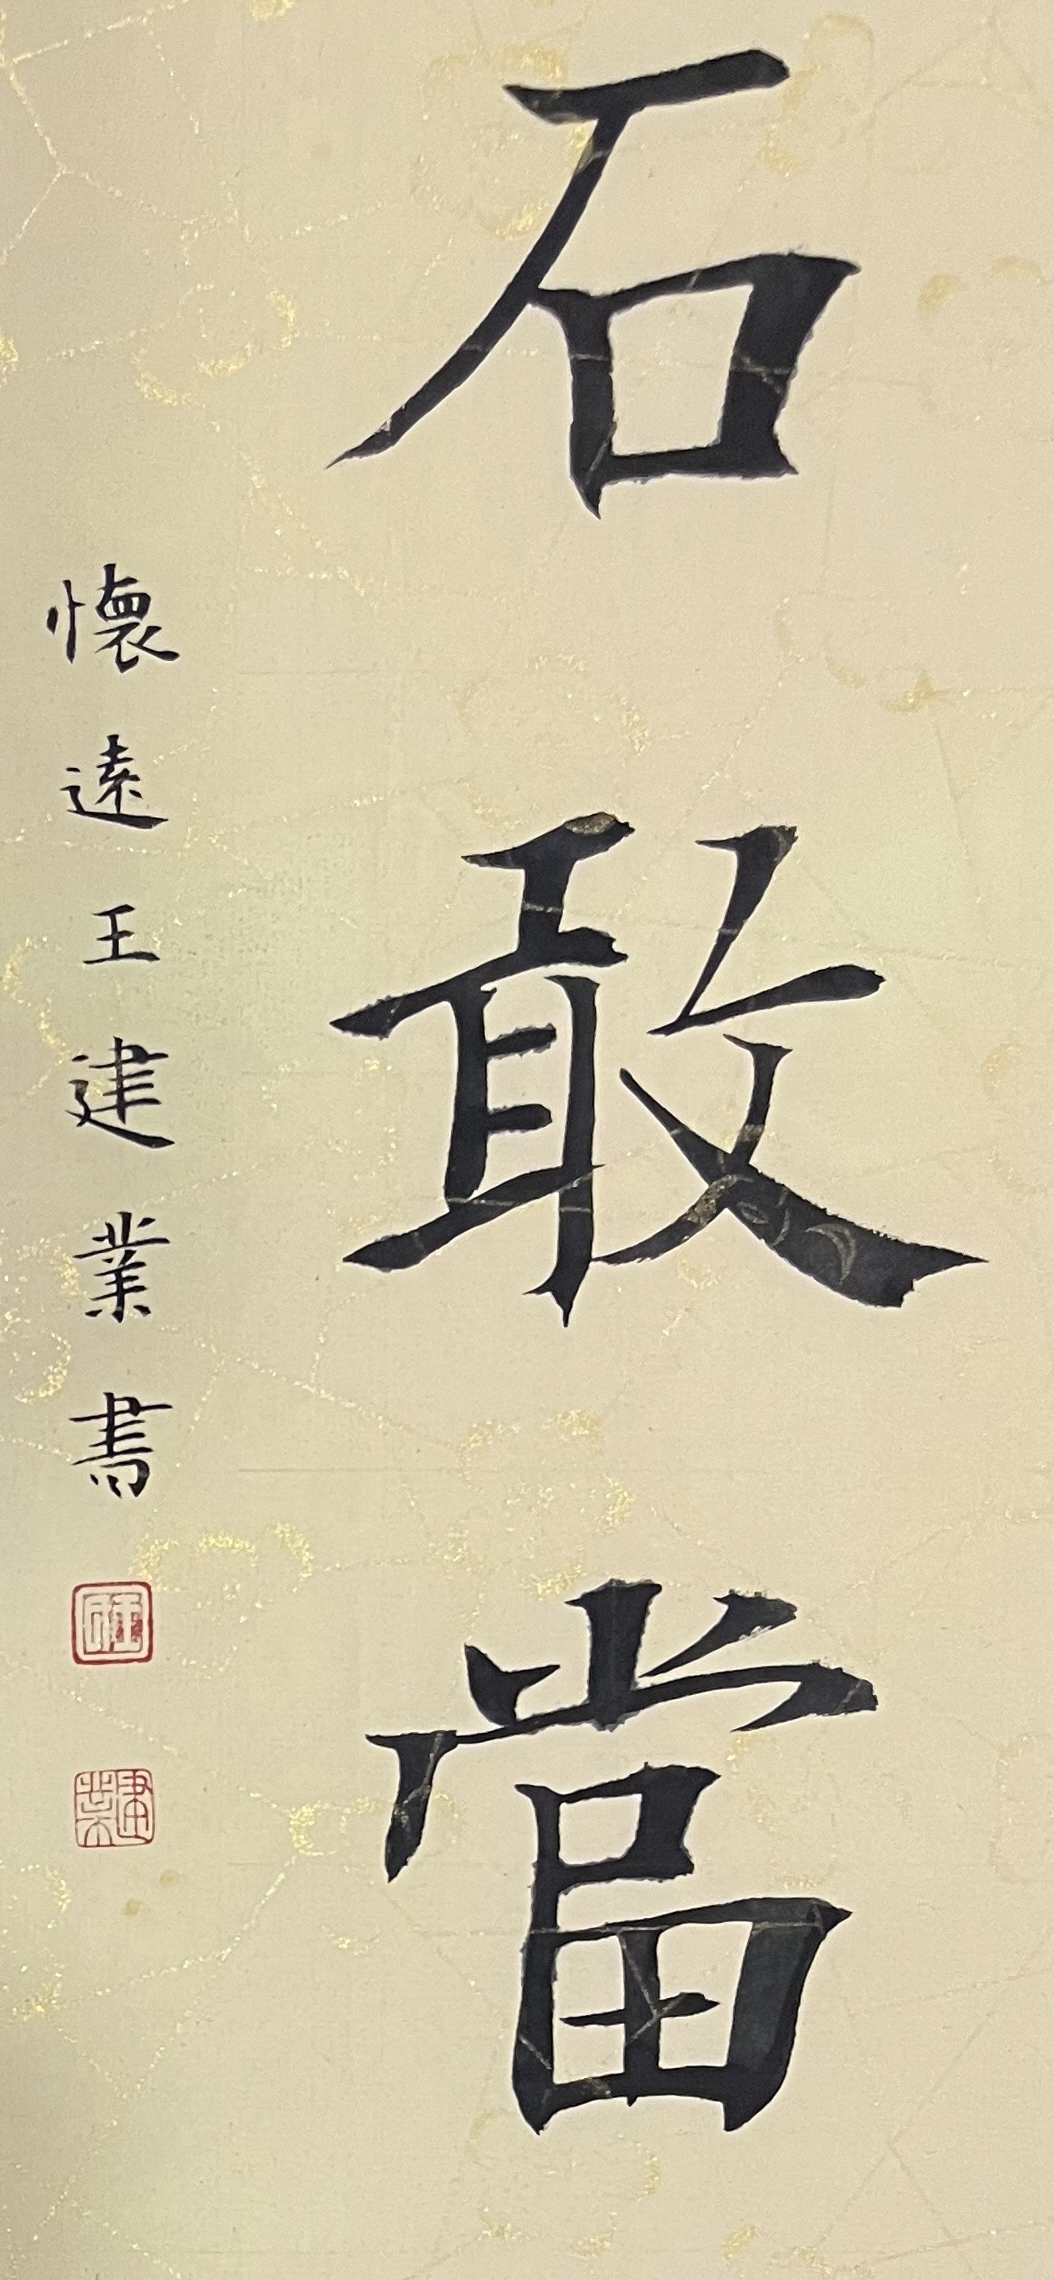 石敢當
懷遠王建業書
建業